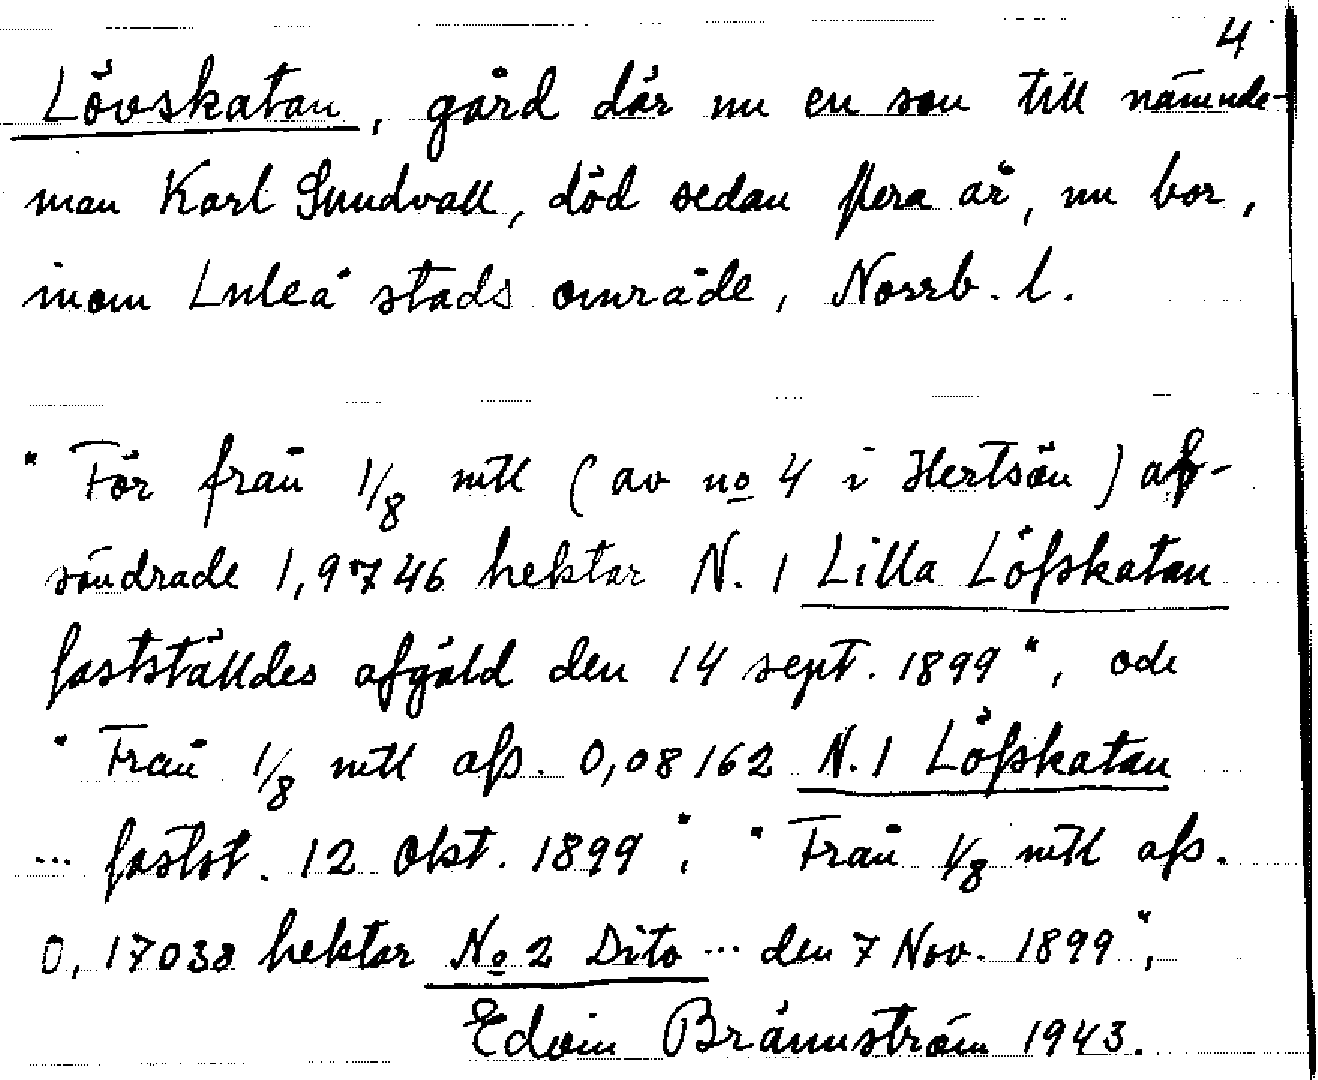 4
Lövskatan, gård där nu en son till nämnde-
man Karl Sundvall, död sedan flera år, nu bor,
inom Luleå stads område, Norrb. l.
"För från 1/8 mtl (av no 4 i Hertsön) af-
söndrade 1,9746 hektar N. 1 Lilla Löfskatan
fastställdes afgäld den 14 sept. 1899", och
"Från 1/8 mtl afs. 0,08162 N. 1 Löfskatan
... fastst. 12 Okt. 1899", "Från 1/8 mtl afs.
0,17038 hektar No 2 Dito ... den 7 Nov. 1899",
Edvin Brännström 1943.